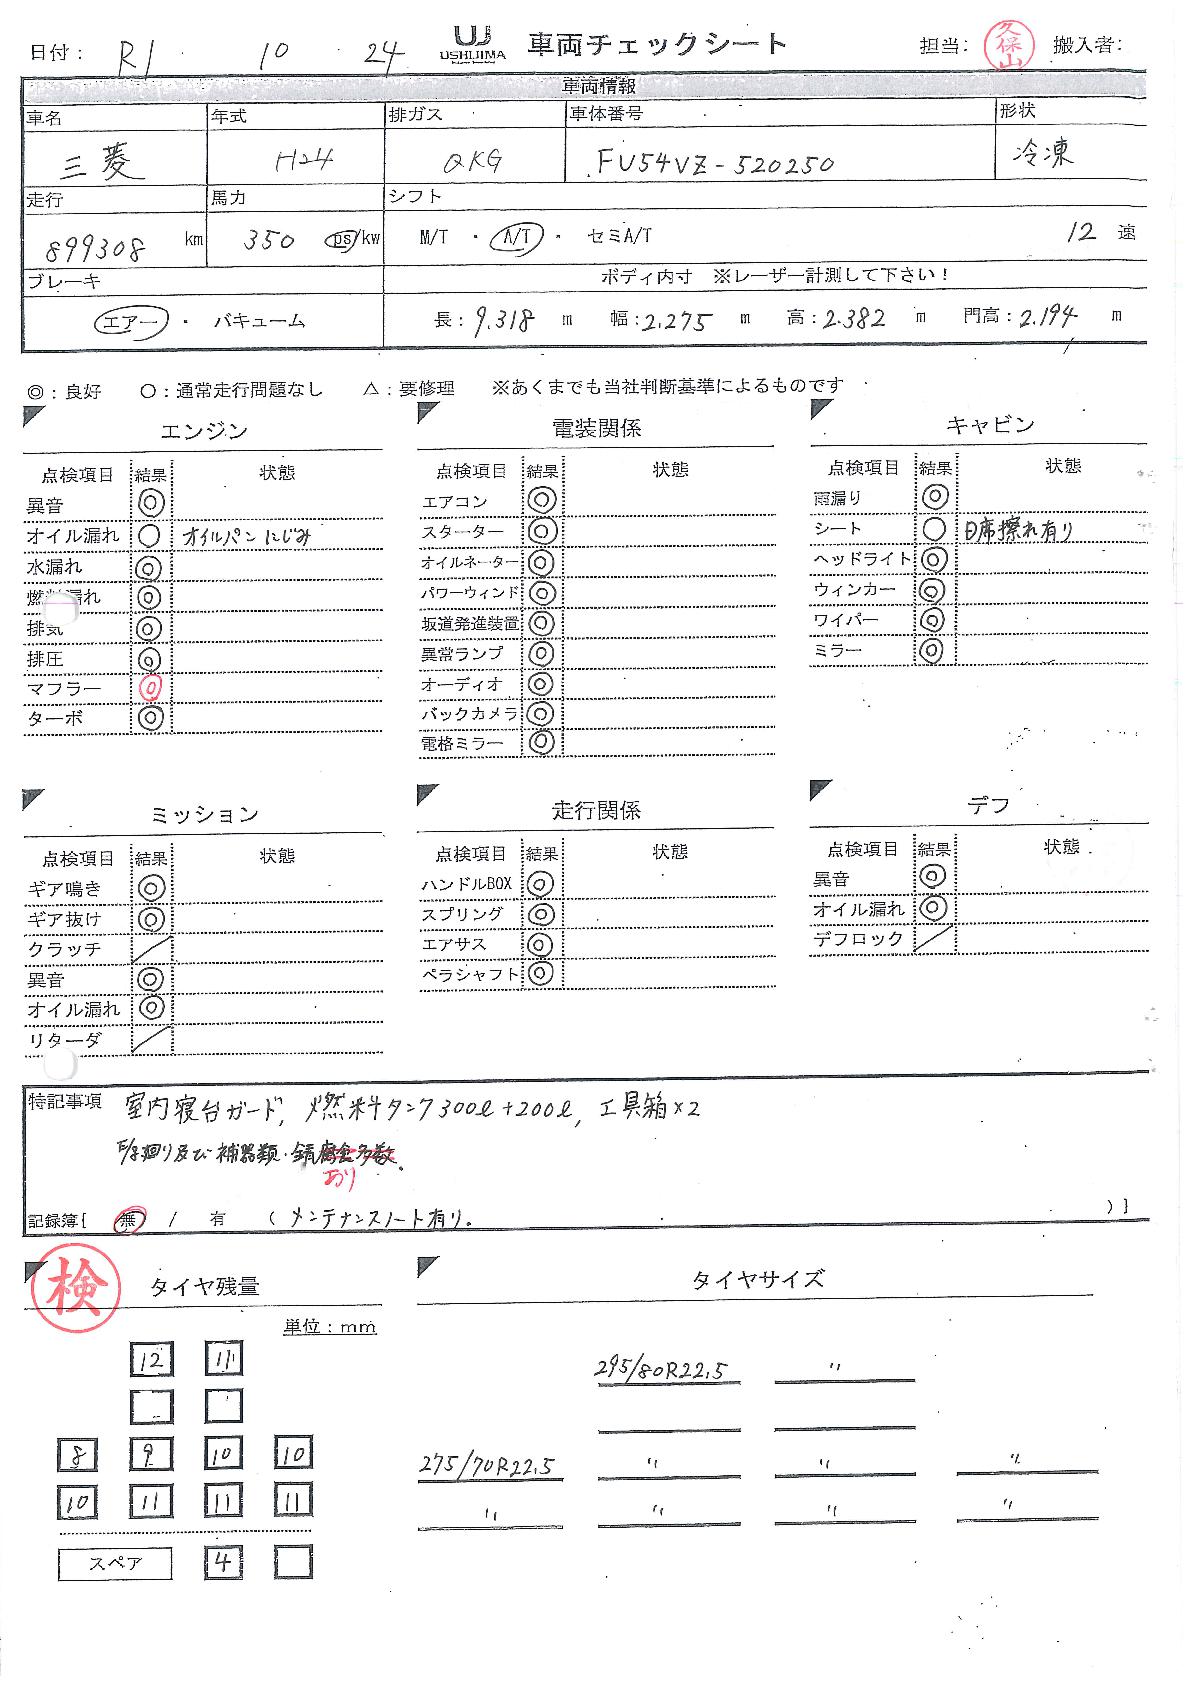 日付： R1 10 24 UJ USHIJIMA 車両チェックシート 担当： 久保山 搬入者：
車両情報
車名 年式 排ガス 車体番号 形状
三菱 H24 QKG FU54VZ-520250 冷凍
走行 馬力 シフト
899308 km 350 ps/kw M/T ・ A/T ・ セミA/T 12 速
ブレーキ ボディ内寸 ※レーザー計測して下さい！
エアー ・ バキューム 長：9.318 m 幅：2.275 m 高：2.382 m 門高：2.194 m
◎：良好 〇：通常走行問題なし △：要修理 ※あくまでも当社判断基準によるものです
エンジン
点検項目 結果 状態
異音 ◎
オイル漏れ 〇 オイルパンにじみ
水漏れ ◎
燃料漏れ ◎
排気 ◎
排圧 ◎
マフラー ◎
ターボ ◎
電装関係
点検項目 結果 状態
エアコン ◎
スターター ◎
オイルネーター ◎
パワーウィンド ◎
坂道発進装置 ◎
異常ランプ ◎
オーディオ ◎
バックカメラ ◎
電格ミラー ◎
キャビン
点検項目 結果 状態
雨漏り ◎
シート 〇 D席擦れ有り
ヘッドライト ◎
ウィンカー ◎
ワイパー ◎
ミラー ◎
ミッション
点検項目 結果 状態
ギア鳴き ◎
ギア抜け ◎
クラッチ ／
異音 ◎
オイル漏れ ◎
リターダ ／
走行関係
点検項目 結果 状態
ハンドルBOX ◎
スプリング ◎
エアサス ◎
ペラシャフト ◎
デフ
点検項目 結果 状態
異音 ◎
オイル漏れ ◎
デフロック ／
特記事項 室内寝台ガード, 燃料タンク300ℓ+200ℓ, 工具箱×2
廻り及び補器類・錆腐食多数.
あり
記録簿[ 無 / 有 ( メンテナンスノート有り. )]
検 タイヤ残量
単位：mm
12 11
8 9 10 10
10 11 11 11
スペア 4
タイヤサイズ
295/80R22.5 〃
275/70R22.5 〃 〃 〃
〃 〃 〃 〃